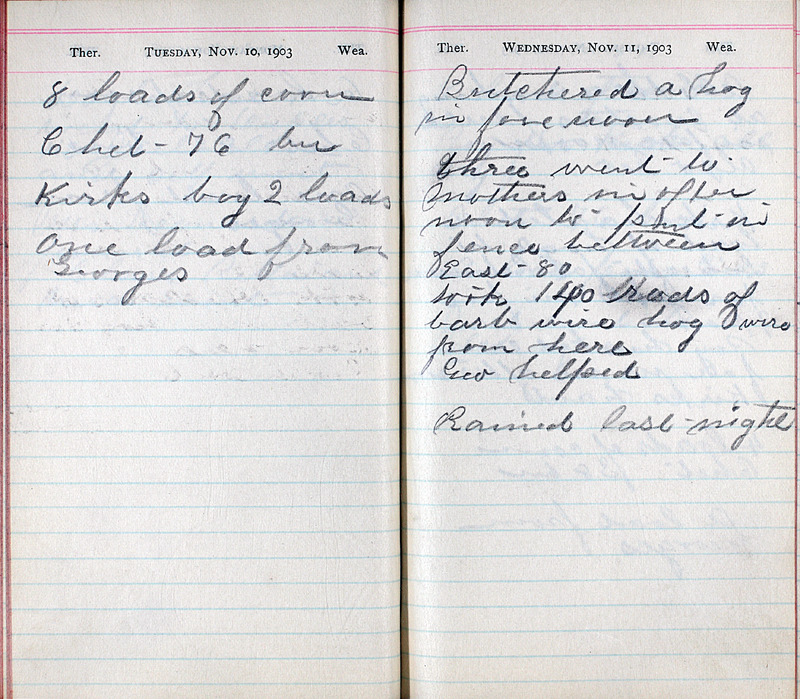 Ther. Tuesday, Nov. 10, 1903 Wea.
8 loads of corn
Chet - 76 bu
Kirks boy 2 loads
One load from
Georges
Ther. Wednesday, Nov. 11, 1903 Wea.
Butchered a hog
in forenoon
three went to
Mothers in after
noon to put in
fence between
East 80
took 140 rods of
barb wire hog wire
from here
Geo helped
Rained last night